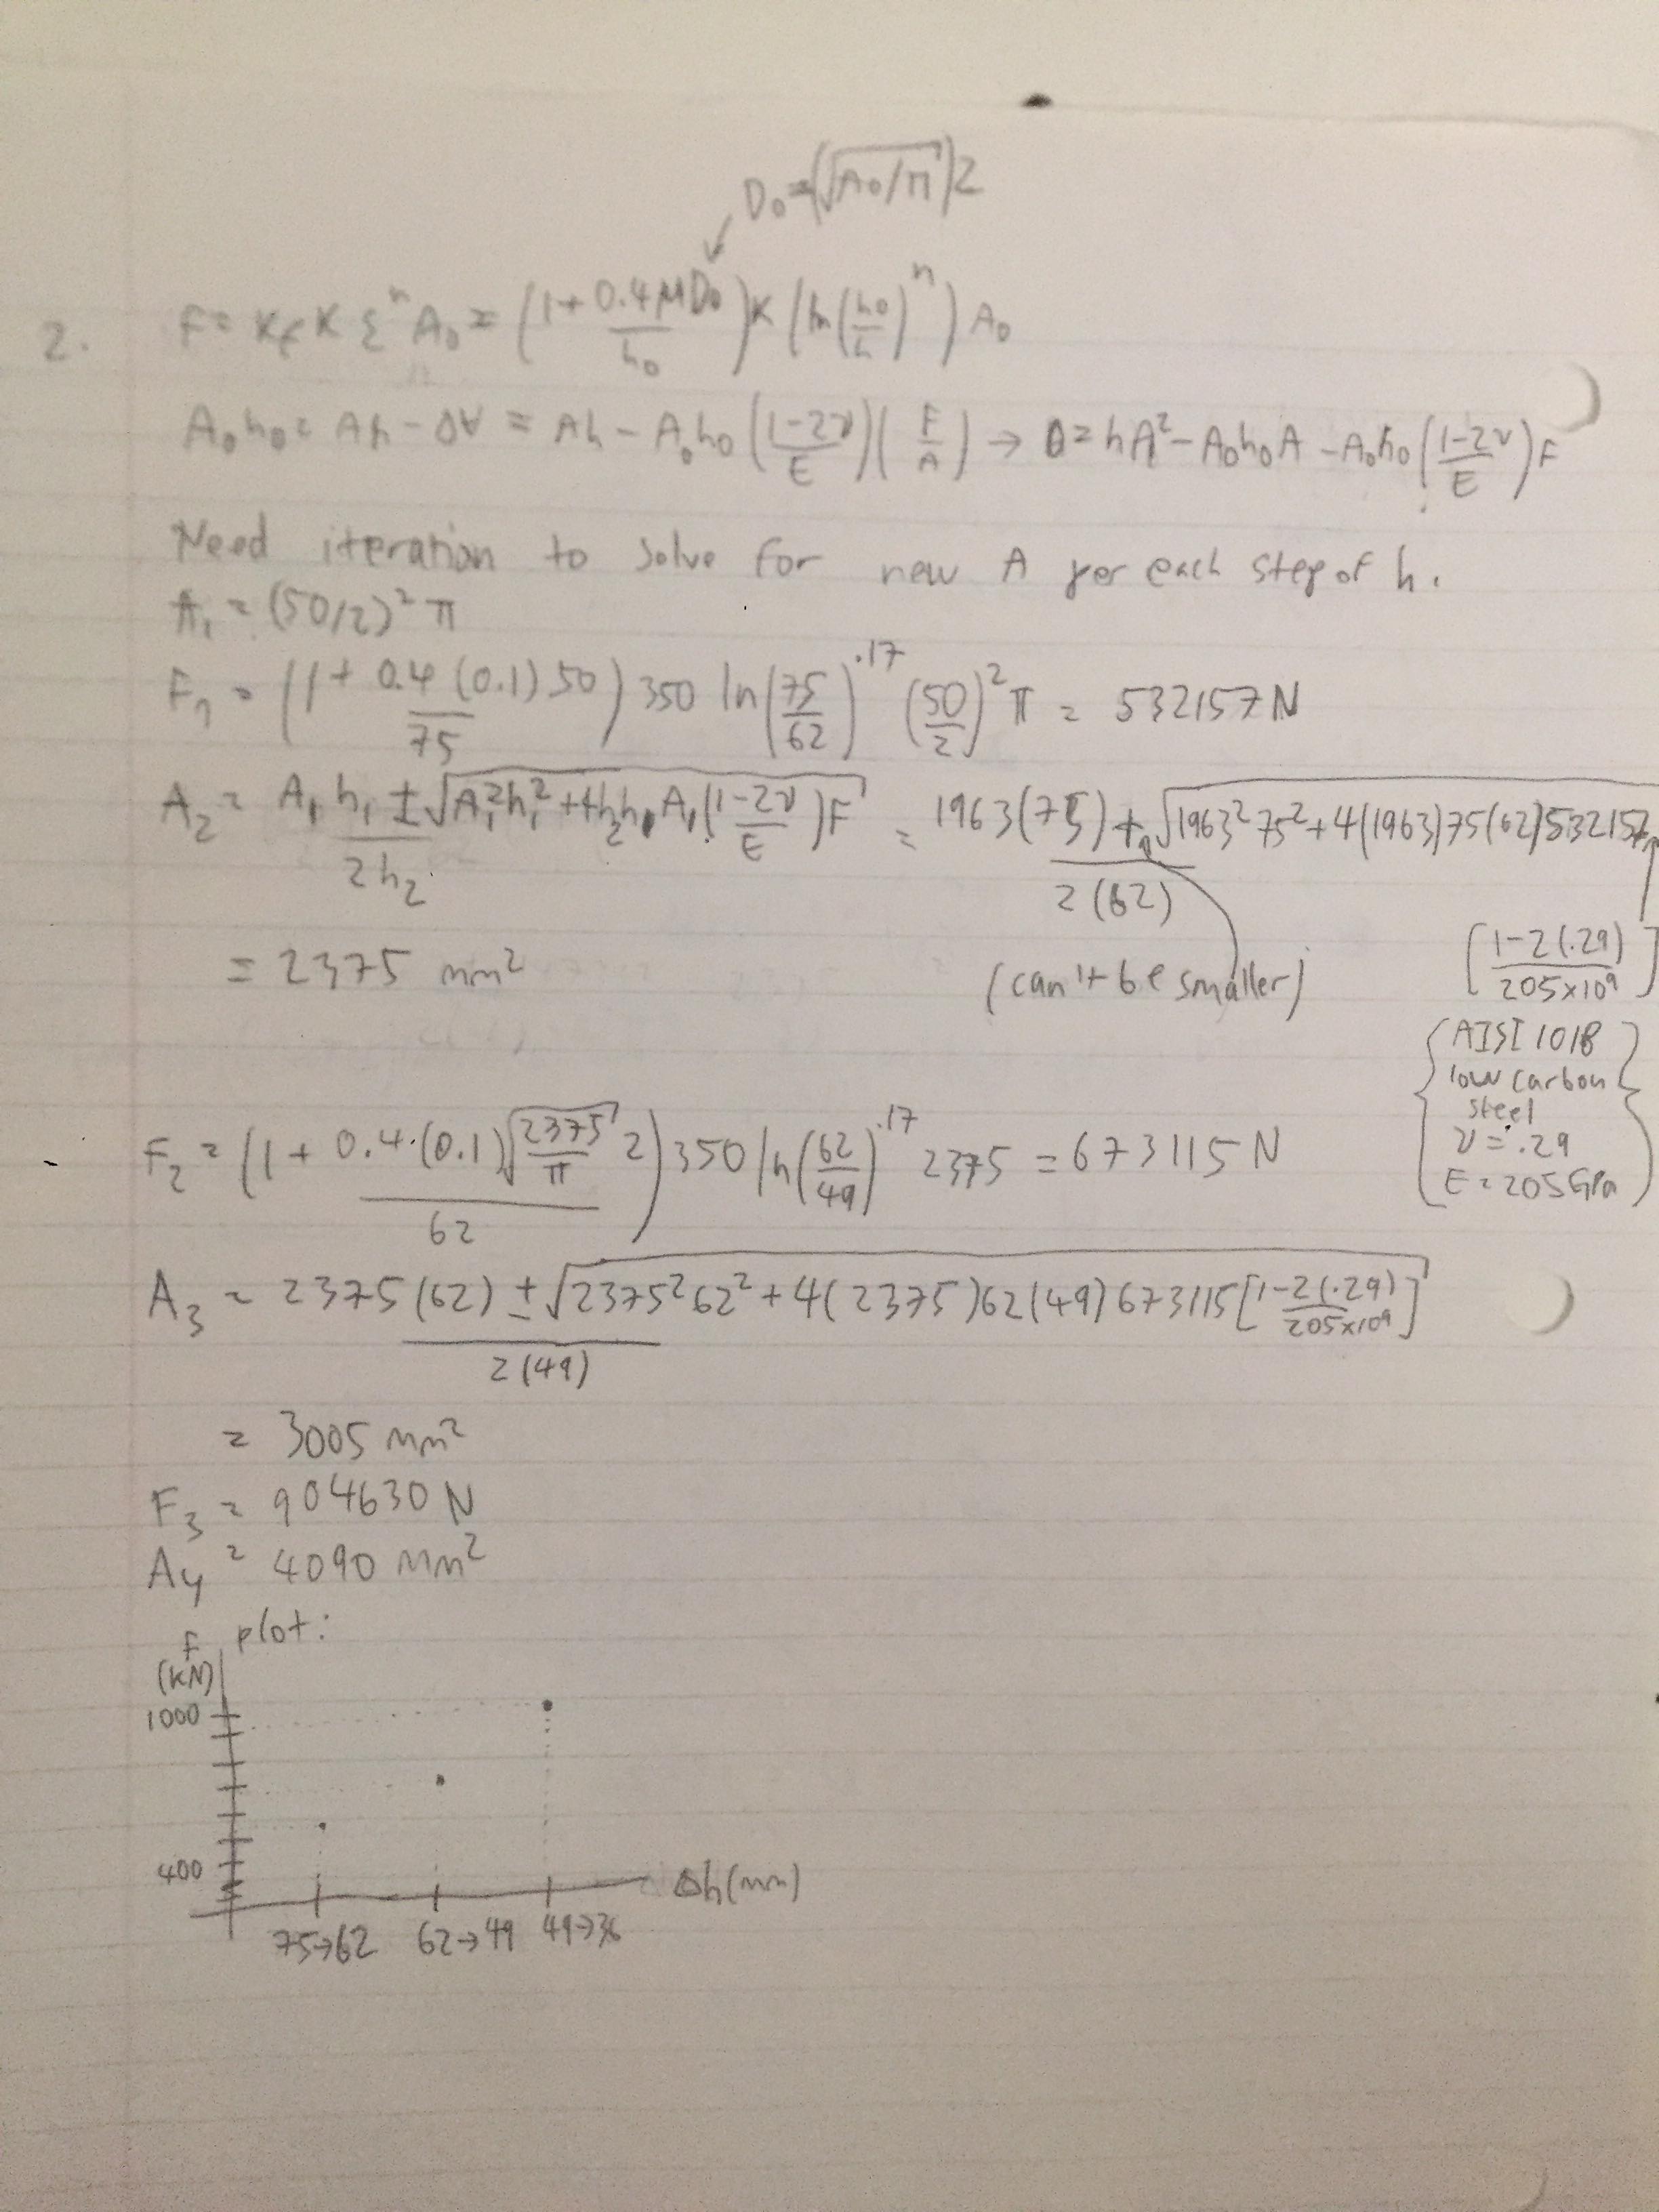 D₀=(√(A₀/π))2
2. F = K_f K Σⁿ A₀ = (1+ 0.4μD₀/h₀)K (ln(h₀/h)ⁿ) A₀
A₀h₀ = Ah - ΔV = Ah - A₀h₀ ((1-2ν)/E)(F/A) → 0 = hA² - A₀h₀A - A₀h₀((1-2ν)/E)F
Need iteration to solve for new A per each step of h.
A₁ = (50/2)² π
F₁ = (1+ 0.4(0.1)50/75) 350 ln(75/62)^.17 (50/2)² π = 532157 N
A₂ = (A₁h₁ ± √(A₁²h₁² + 4h₂h₁A₁((1-2ν)/E)F))/2h₂ = (1963(75) + √(1963² 75² + 4(1963)75(62)532157))/2(62)
= 2375 mm²
(can't be smaller)
[(1-2(.29))/(205×10⁹)]
{AISI 1018
low carbon
steel
ν = .29
E = 205 GPa}
F₂ = (1 + 0.4·(0.1)√(2375/π) 2/62) 350 ln(62/49)^.17 2375 = 673115 N
A₃ = (2375(62) ± √(2375² 62² + 4(2375)62(49)673115[(1-2(.29))/(205×10⁹)]))/2(49)
= 3005 mm²
F₃ = 904630 N
A₄ = 4090 mm²
plot:
F
(kN)
1000
400
Δh(mm)
75→62 62→49 49→36